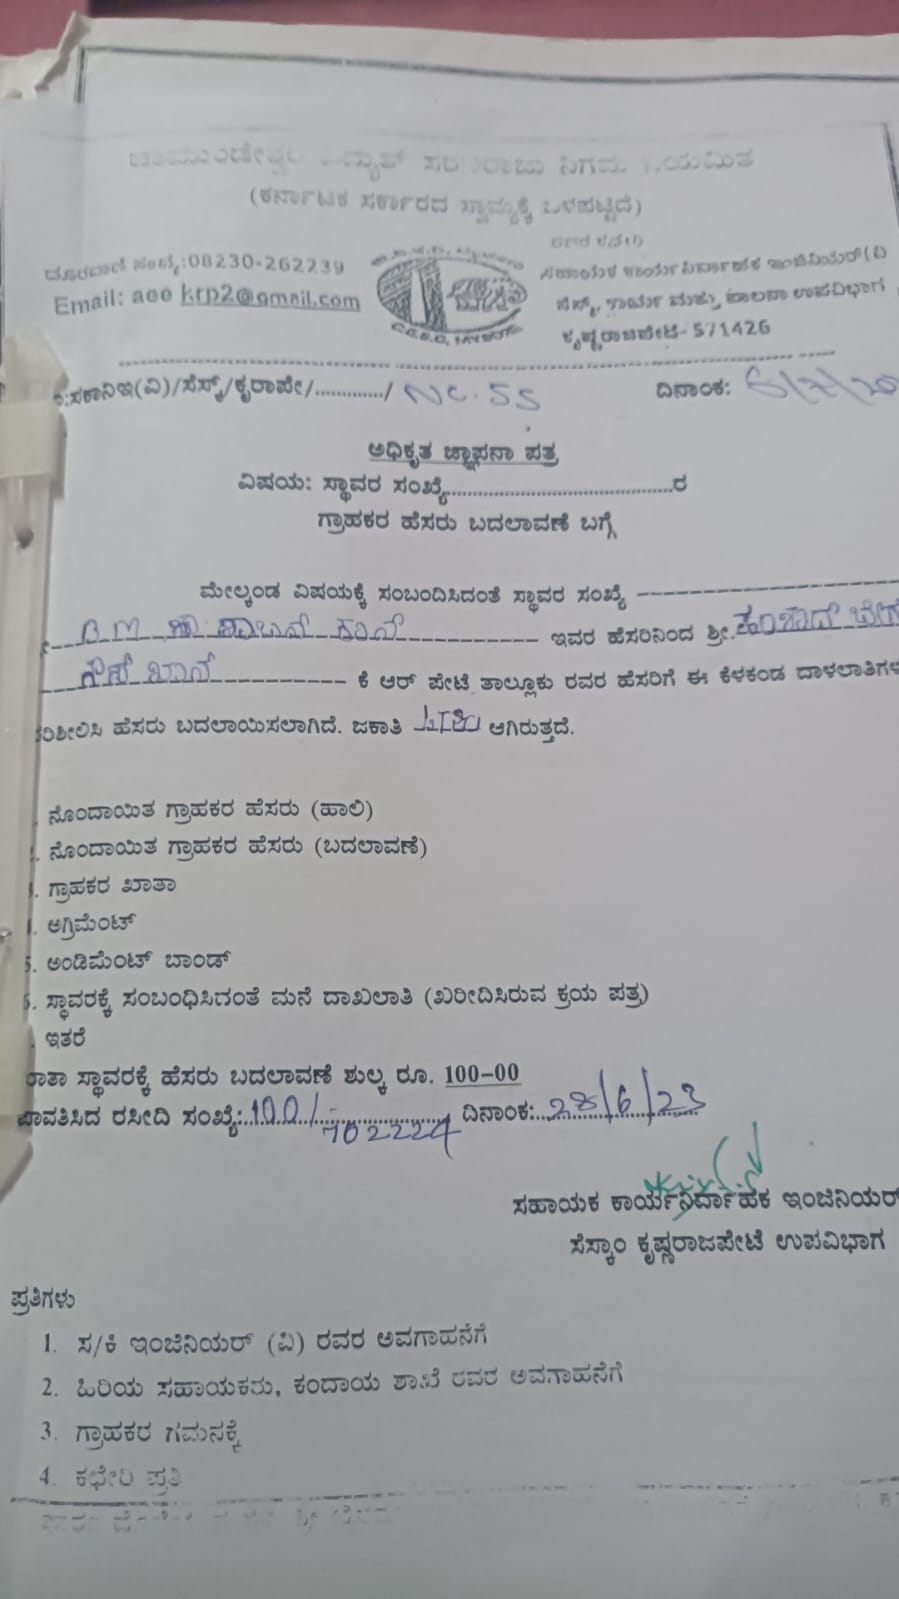 ಚಾಮುಂಡೇಶ್ವರಿ ವಿದ್ಯುತ್ ಸರಬರಾಜು ನಿಗಮ ನಿಯಮಿತ
(ಕರ್ನಾಟಕ ಸರ್ಕಾರದ ಸ್ವಾಮ್ಯಕ್ಕೆ ಒಳಪಟ್ಟಿದೆ)
ದೂರವಾಣಿ ಸಂಖ್ಯೆ:08230-262239
Email: aee krp2@gmail.com
ಸಹಾಯಕ ಕಾರ್ಯನಿರ್ವಾಹಕ ಇಂಜಿನಿಯರ್(ವಿ
ಸೆಸ್ಕ್, ಕಾರ್ಯ ಮತ್ತು ಪಾಲನಾ ಉಪವಿಭಾಗ
ಕೃಷ್ಣರಾಜಪೇಟೆ-571426
:ಸಕಾನಿಇ(ವಿ)/ಸೆಸ್ಕ್/ಕೃರಾಪೇ/............./ NC. 55 ದಿನಾಂಕ:
ಅಧಿಕೃತ ಜ್ಞಾಪನಾ ಪತ್ರ
ವಿಷಯ: ಸ್ಥಾವರ ಸಂಖ್ಯೆ..........................................ರ
ಗ್ರಾಹಕರ ಹೆಸರು ಬದಲಾವಣೆ ಬಗ್ಗೆ
ಮೇಲ್ಕಂಡ ವಿಷಯಕ್ಕೆ ಸಂಬಂದಿಸಿದಂತೆ ಸ್ಥಾವರ ಸಂಖ್ಯೆ
ಇವರ ಹೆಸರಿನಿಂದ ಶ್ರೀ.
ಖಾನ್ ಕೆ ಆರ್ ಪೇಟೆ ತಾಲ್ಲೂಕು ರವರ ಹೆಸರಿಗೆ ಈ ಕೆಳಕಂಡ ದಾಳಲಾತಿಗಳ
ಪರಿಶೀಲಿಸಿ ಹೆಸರು ಬದಲಾಯಿಸಲಾಗಿದೆ. ಜಕಾತಿ ಆಗಿರುತ್ತದೆ.
. ನೊಂದಾಯಿತ ಗ್ರಾಹಕರ ಹೆಸರು (ಹಾಲಿ)
. ನೊಂದಾಯಿತ ಗ್ರಾಹಕರ ಹೆಸರು (ಬದಲಾವಣೆ)
. ಗ್ರಾಹಕರ ಖಾತಾ
. ಅಗ್ರಿಮೆಂಟ್
5. ಅಂಡಿಮೆಂಟ್ ಬಾಂಡ್
6. ಸ್ಥಾವರಕ್ಕೆ ಸಂಬಂಧಿಸಿದಂತೆ ಮನೆ ದಾಖಲಾತಿ (ಖರೀದಿಸಿರುವ ಕ್ರಯ ಪತ್ರ)
. ಇತರೆ
ಖಾತಾ ಸ್ಥಾವರಕ್ಕೆ ಹೆಸರು ಬದಲಾವಣೆ ಶುಲ್ಕ ರೂ. 100-00
ಪಾವತಿಸಿದ ರಸೀದಿ ಸಂಖ್ಯೆ:.100/ ದಿನಾಂಕ:..28/6/23
ಸಹಾಯಕ ಕಾರ್ಯನಿರ್ವಾಹಕ ಇಂಜಿನಿಯರ್
ಸೆಸ್ಕಾಂ ಕೃಷ್ಣರಾಜಪೇಟೆ ಉಪವಿಭಾಗ
ಪ್ರತಿಗಳು
1. ಸ/ಕಿ ಇಂಜಿನಿಯರ್ (ವಿ) ರವರ ಅವಗಾಹನೆಗೆ
2. ಹಿರಿಯ ಸಹಾಯಕರು, ಕಂದಾಯ ಶಾಖೆ ರವರ ಅವಗಾಹನೆಗೆ
3. ಗ್ರಾಹಕರ ಗಮನಕ್ಕೆ
4. ಕಛೇರಿ ಪ್ರತಿ